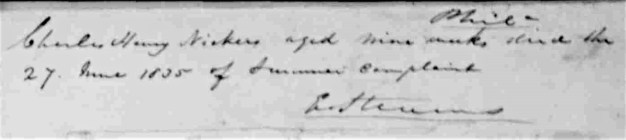 Phila
Charles Henry Nickers aged nine weeks died the
27. June 1835 of Summer Complaint
E. Stevens